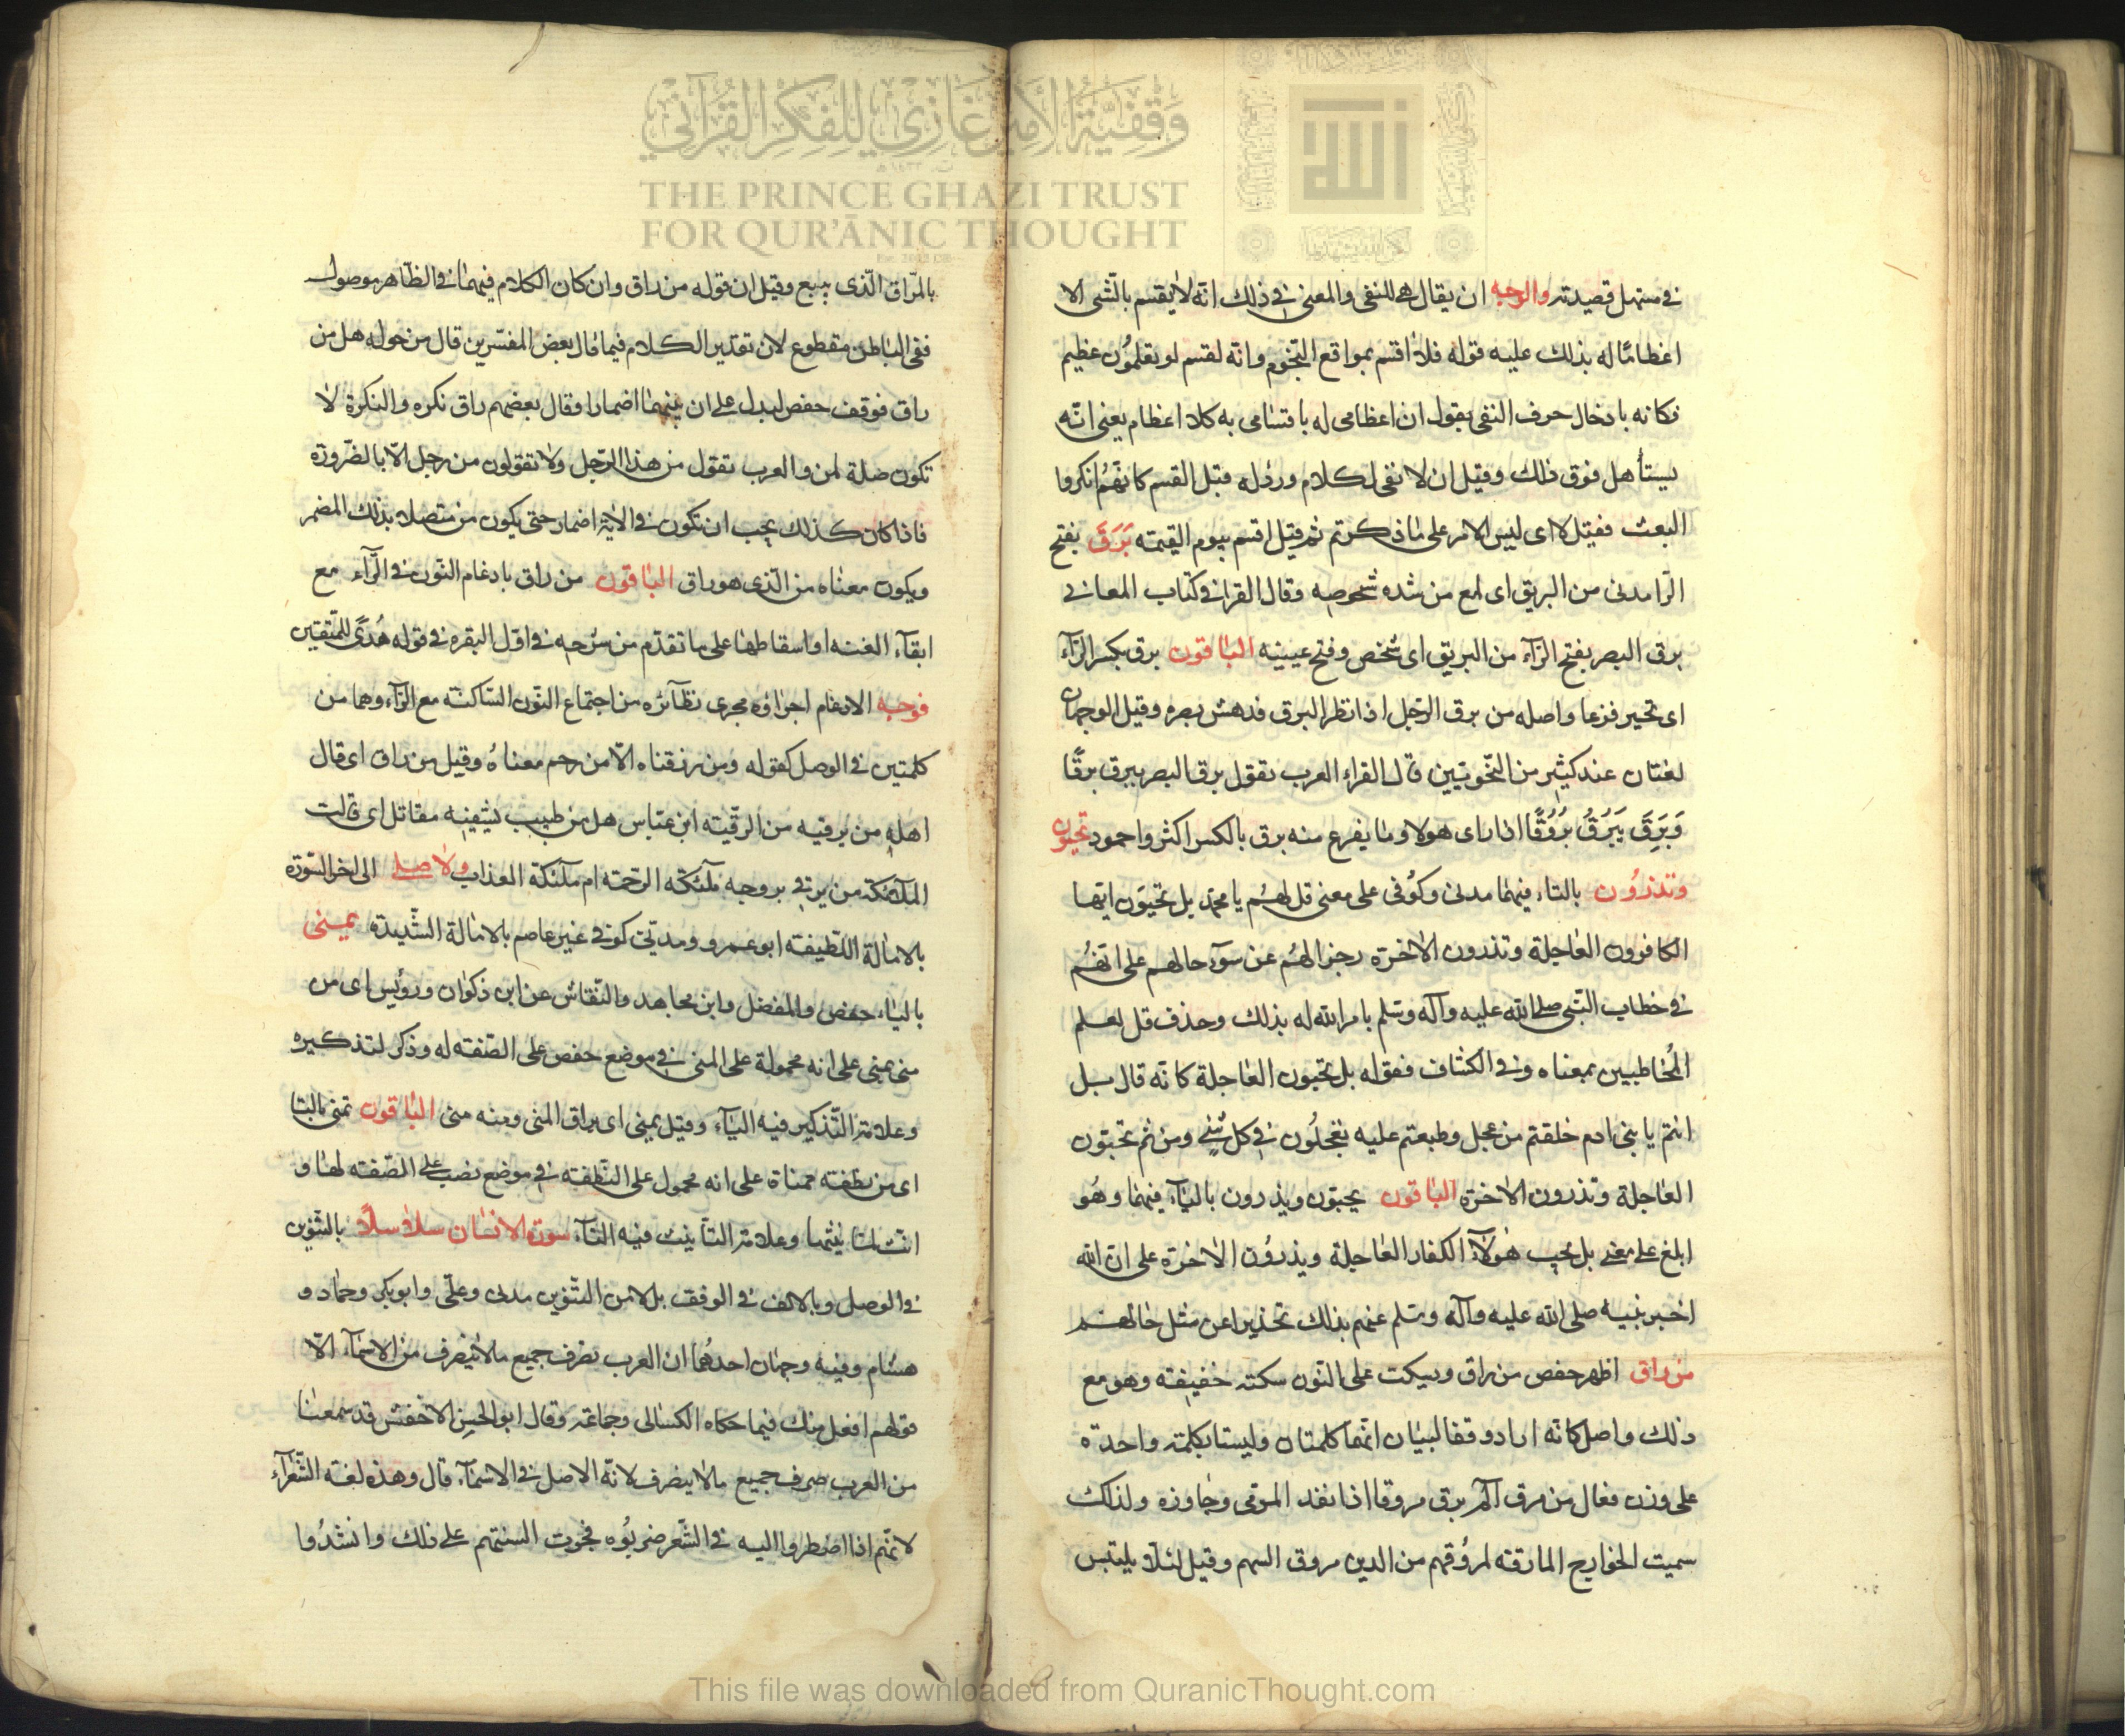 وقفية الأمير غازي للفكر القرآني
THE PRINCE GHAZI TRUST
FOR QUR'ĀNIC THOUGHT
في مستهل قصيدته والوجه ان يقال هي للنفي والمعنى في ذلك انه لا يقسم بالشى الا
اعظاما له بذلك عليه قوله فلا اقسم بمواقع النجوم وانه لقسم لو تعلمون عظيم
فكانه بادخال حرف النفى يقول ان اعظامى له باقسامى به كلا اعظام يعنى انه
يستأهل فوق ذلك وقيل ان لا نفى لكلام ورد له قبل القسم كانهم انكروا
البعث فقيل لا اى ليس الامر على ما ذكرتم ثم قيل اقسم بيوم القيمة بَرَقَ بفتح
الرا مدنى من البريق اى لمع من شده شخوصه وقال الفرا في كتاب المعانى
برق البصر بفتح الرّاء من البريق اى شخص وفتح عينيه الباقون برق بكسر الرّاء
اى تحير فزعا واصله من برق الرجل اذا نظر البرق فدهش بصره وقيل الوجهان
لغتان عند كثير من النحويين قال الفراء العرب تقول برق البصر يبرق برقًا
وَبَرِقَ يَبْرُقُ بُرُوُقًا اذا راى هولا وما يفزع منه برق بالكسر اكثر واجود تحبون
وتذرُون بالتاء فيهما مدنى وكُوفى على معنى قل لهُم يا محمد بل تحبون ايها
الكافرون العاجلة وتذرون الاخرة رجزا لهُم عن سوء حالهم على انهُم
في خطاب النّبى صلى الله عليه وآله وسلم بامر الله له بذلك وحذف قل لعلم
المُخاطبين بمعناه وفي الكشاف فقوله بل تحبون العاجلة كانه قال بل
انتم يا بنى ادم خلقتم من عجل وطبعتم عليه تعجلُون في كل شئ ومن ثم تحبّون
العاجلة وتذرون الاخرة الباقون يحبّون ويذرون بالياء فيهما وهُو
ابلغ على معنى بل يحب هٰولاء الكفار العاجلة ويذرُون الاخرة على ان الله
اخبر نبيه صلى الله عليه وآله وسلم عنهم بذلك تحذيرا عن مثل حالهم
من راق اظهر حفص من راق ويسكت على النون سكته خفيفة وهو مع
ذلك واصل كانه اراد وقفا لبيان انهما كلمتان وليستا بكلمة واحدة
على وزن فعال من مرق يمرق مروقا اذا نفذ المرمى وجاوزه ولذلك
سميت الخوارج المارقة لمرُوقهم من الدين مروق السهم وقيل لئلا يلتبس
بالمرّاق الّذى يبيع وقيل ان قوله من راق وان كان الكلام فيهما في الظاهر موصول
ففى الباطن مقطوع لان تقدير الكلام فيما قال بعض المفسرين قال من حوله هل من
راق فوقف حفص ليدل على ان بينهما اضمارا وقال بعضهم راق نكره والنكرة لا
تكون صلة لمن والعرب تقول من هذا الرجل ولا تقولون من رجل الّا بالضرورة
فاذا كان كذلك يجب ان تكون في الاية اضمار حتى يكون من متصلا بذلك المضمر
ويكون معناه من الّذى هو راق الباقون من راق بادغام النون في الرّاء مع
ابقاء الغنه او اسقاطها على ما تقدّم من شرحه في اوّل البقره في قوله هُدًى للمتّقين
فوجه الادغام اجراؤه مجرى نظائره من اجتماع النون الساكنة مع الراء وهما من
كلمتين في الوصل كقوله ومن رزقناه الّا من رحم معناهُ وقيل من راق اى قال
اهله من يرقيه من الرقية ابن عبّاس هل من طبيب يشفيه مقاتل اى قالت
الملائكة من يرقى بروحه ملئكة الرحمة ام ملئكة العذاب ولا صلى الى اخر السّورة
بالامالة اللطيفة ابوعمرو ومدنى كوفى غير عاصم بالامالة الشديدة يمنى
بالياء حفص والمفضل وابن مجاهد والنقاش عن ابن ذكوان ورويس اى من
منى يمنى على انه محمولة على المنى في موضع خفص على الصّفة له وذكر لتذكيره
وعلامة التّذكير فيه الياء وقيل يمنى اى يراق المنى ومنه منى الباقون تمنى بالتا
اى من نطفة ممناة على انه محمول على النّطفة في موضع نصب على الصّفة لها و
انّث لتانيثها وعلامة التانيث فيه التاء سورة الانسان سلاسلًا بالتّنوين
في الوصل وبالالف في الوقف بدلا من التنوين مدنى وعلىّ وابوبكر وحمّاد و
هشام وفيه وجهان احدهُما ان العرب تصرف جميع ما لا ينصرف من الاسماء الّا
قولهم افعل منك فيما حكاه الكسائى وجماعة وقال ابو الحسن الاخفش قد سمعنا
من العرب صرف جميع ما لا ينصرف لانّه الاصل في الاسماء قال وهذه لغة الشّعراء
لانّهم اذا اضطروا اليه في الشّعر صرفُوه فجرت السنتهم على ذلك وانشدُوا
This file was downloaded from QuranicThought.com